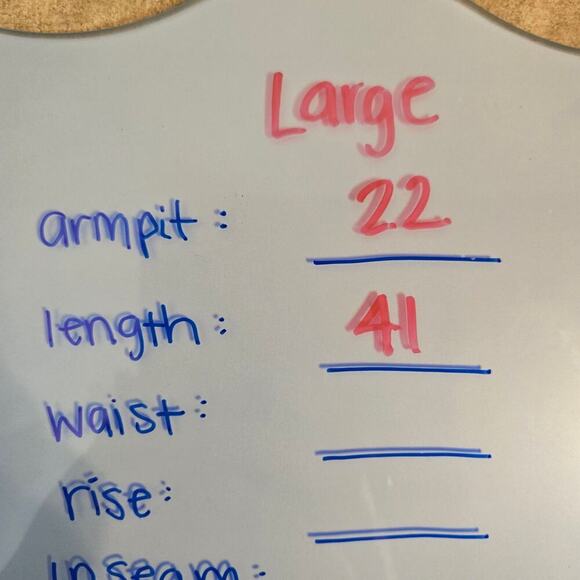 Large
armpit: 22
length: 41
waist:
rise:
inseam: